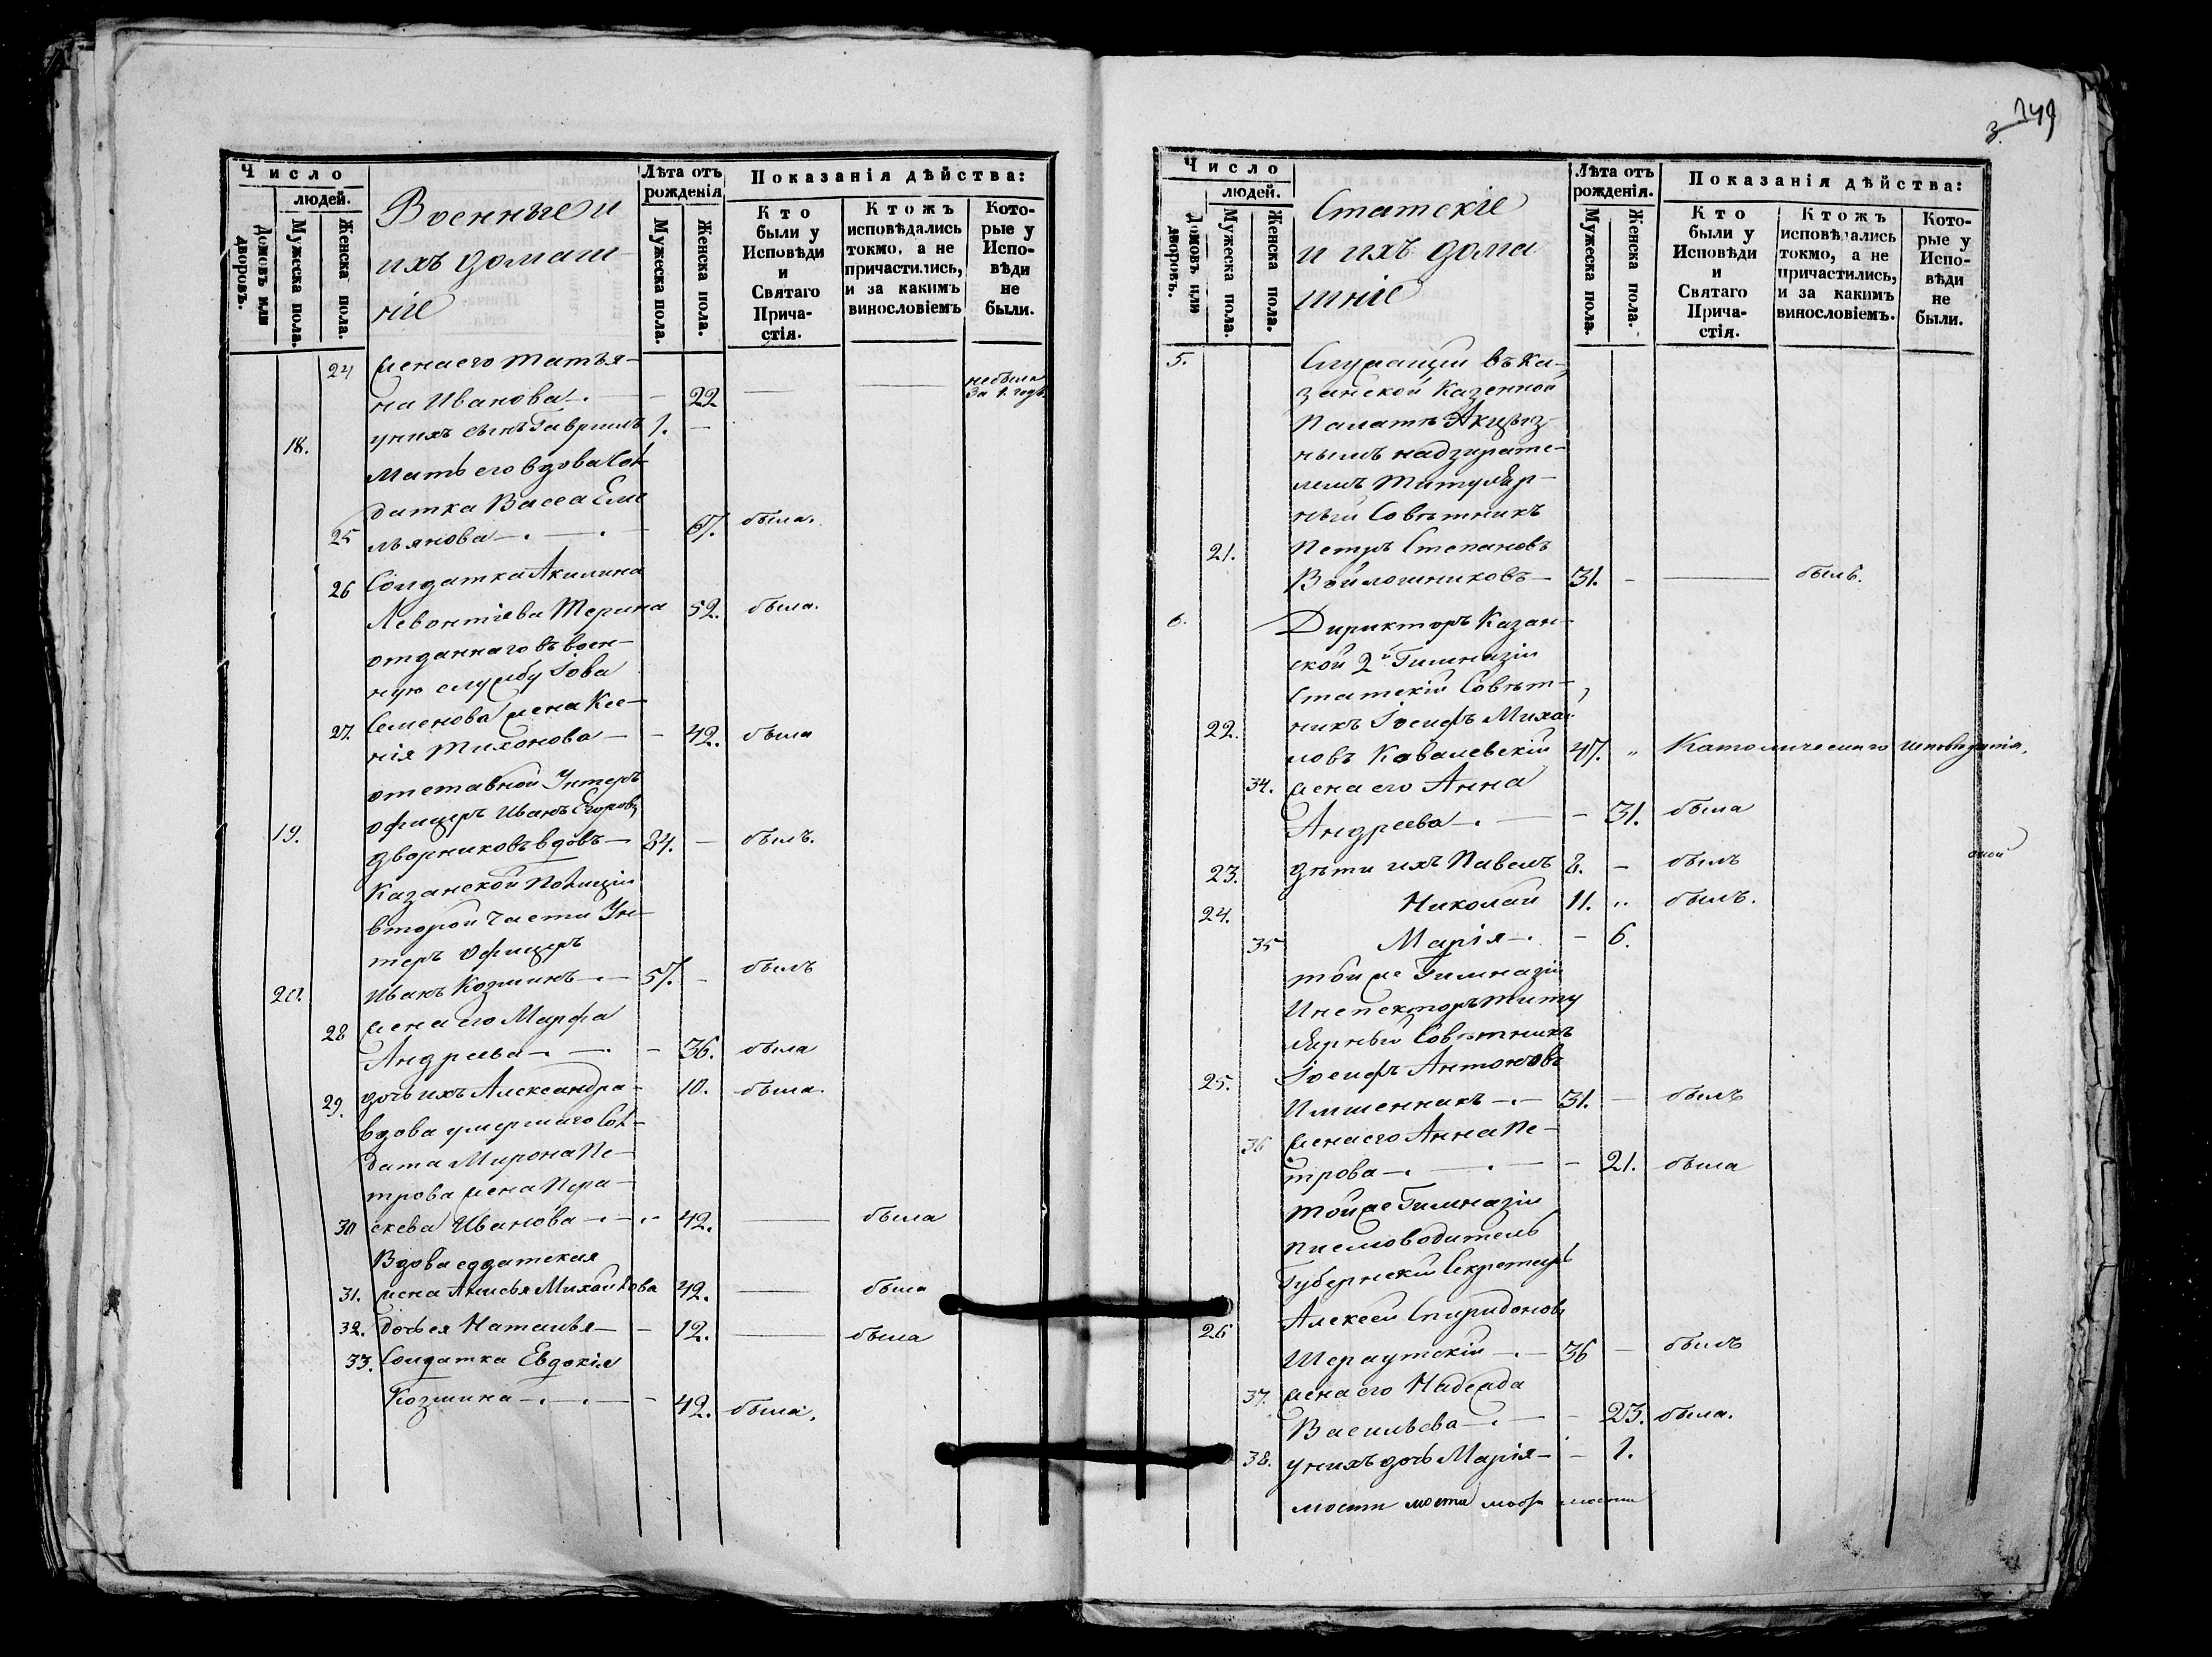 Число
людей.
Домовъ или дворовъ.
Мужеска пола.
Женска пола.
Военные и
ихъ домаш
ніе
Лѣта отъ рожденія
Мужеска пола.
Женска пола.
Показанія дѣйства:
Кто были у Исповѣди и Святаго Прича-стія.
Ктожъ исповѣдались токмо, а не причастились, и за какимъ винословіемъ
Кото-рые у Испо-вѣди не были.
24 жена его Татья-
на Иванова — 22 небыла за 1. годъ
18. у нихъ сынъ Гавриилъ 1. —
Мать его вдова Сол
датка Васса Еме
25 льянова — 67. была.
26 Солдатка Акилина
Левонтіева Терина 52. была.
отданнаго въ воен-
ную службу Іова
27. Семенова жена Ксе-
нія Тихонова — 42. была
отставной Унтеръ
офицеръ Иванъ Егоровъ
19. Дворниковъ вдовъ — 84. — былъ.
Казанской Полиціи
второй части Ун-
теръ офицеръ
20. Иванъ Козминъ — 57. — былъ
28 жена его Марфа
Андреева — 36. была
29. дочь ихъ Александра - 10. была.
вдова умершаго Сол-
дата Мирона Пе-
трова жена Пра-
30 скева Иванова — 42. — была
Вдова солдатская
31. жена Анисья Михайлова 42. — была
32. дочь ея Наталья — 12. — была
33. Солдатка Евдокія
Козмина — 42. была.
3. 249
Число
людей.
Домовъ или дворовъ.
Мужеска пола.
Женска пола.
Статскіе
и ихъ дома
шніе
Лѣта отъ рожденія.
Мужеска пола.
Женска пола.
Показанія дѣйства:
Кто были у Исповѣди и Святаго Прича-стія.
Ктожъ исповѣдались токмо, а не причастились, и за какимъ винословіемъ.
Кото-рые у Испо-вѣди не были.
5. Служащій въ Ка-
занской Казенной
Палатѣ Акциз-
нымъ надзирате-
лемъ Титуляр-
ный Совѣтникъ
21. Петръ Степановъ
Войлошниковъ — 31. — былъ.
6. Дирикторъ Казан-
ской 2й Гимназіи
Статскій Совѣт-
22. никъ Іосифъ Михай
ловъ Ковалевскій 47. " Католическаго исповѣданія.
34. жена его Анна
Андреева — 31. была
23. дѣти ихъ Павелъ 8. — былъ
24. Николай 11. " былъ.
35 Марія — 6.
той же Гимназіи
Инспекторъ Титу
лярный Совѣтникъ
25. Іосифъ Антоновъ
Имшенникъ — 31. — былъ
36 жена его Анна Пе-
трова — 21. была
той же Гимназіи
писмоводитель
Губернскій Секретарь
Алексей Спиридоновъ
26 Шераутскій — 36 — былъ
37. жена его Надежда
Васильева — 23. была.
38. у нихъ дочь Марія — 1.